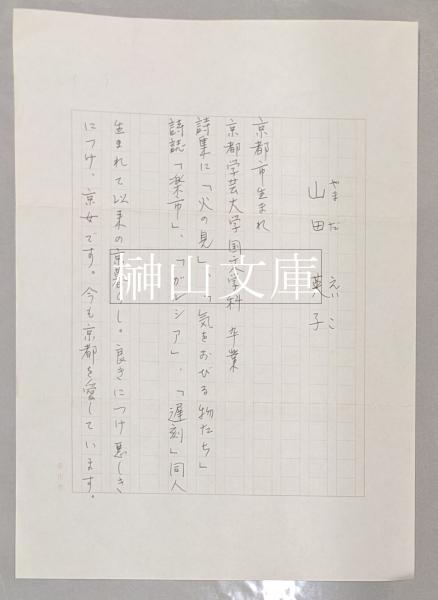 山田 英子
やまだ えいこ
京都市生まれ
京都学芸大学国文学科 卒業
詩集に「火の見」、「気をおびる物たち」
詩誌「楽市」、「ガルシア」、「遅刻」同人
生まれて以来の京暮らし。良きにつけ悪しき
につけ、京女です。今も京都を愛しています。
榊山文庫